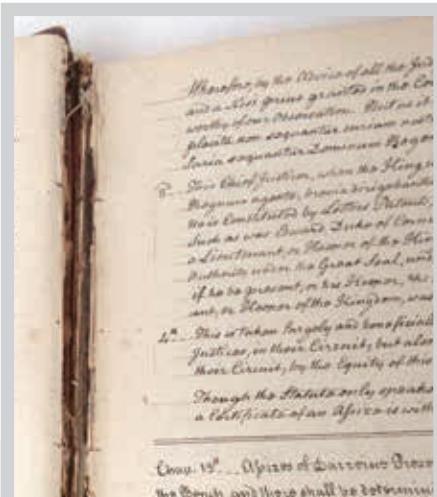 Wherefore, by the Advice of all the Jud
and a Nisi prius granted in the Cou
worthy of our Observation. But as it
placita non sequantur curiam nost
Curia sequantur Dominum Regem
3d This Chief Justice, when the King
Regnum agente, brevia
was Constituted by Letters Patent,
Such as was Edward Duke of Corn
a Lieutenant, or Keeper of the
Authority under the Great Seal, and
if he be present, or his Keeper, the
ant, or Keeper of the Kingdom, was
4th This is taken largely and beneficial
Justices, in their Circuit, but also
their Circuit, by the Equity of this
Though the Statute only speaks
a Certificate of an Assize is with
Chap. 13th Assizes of Darreine Prese
the Bench, and there shall be determin